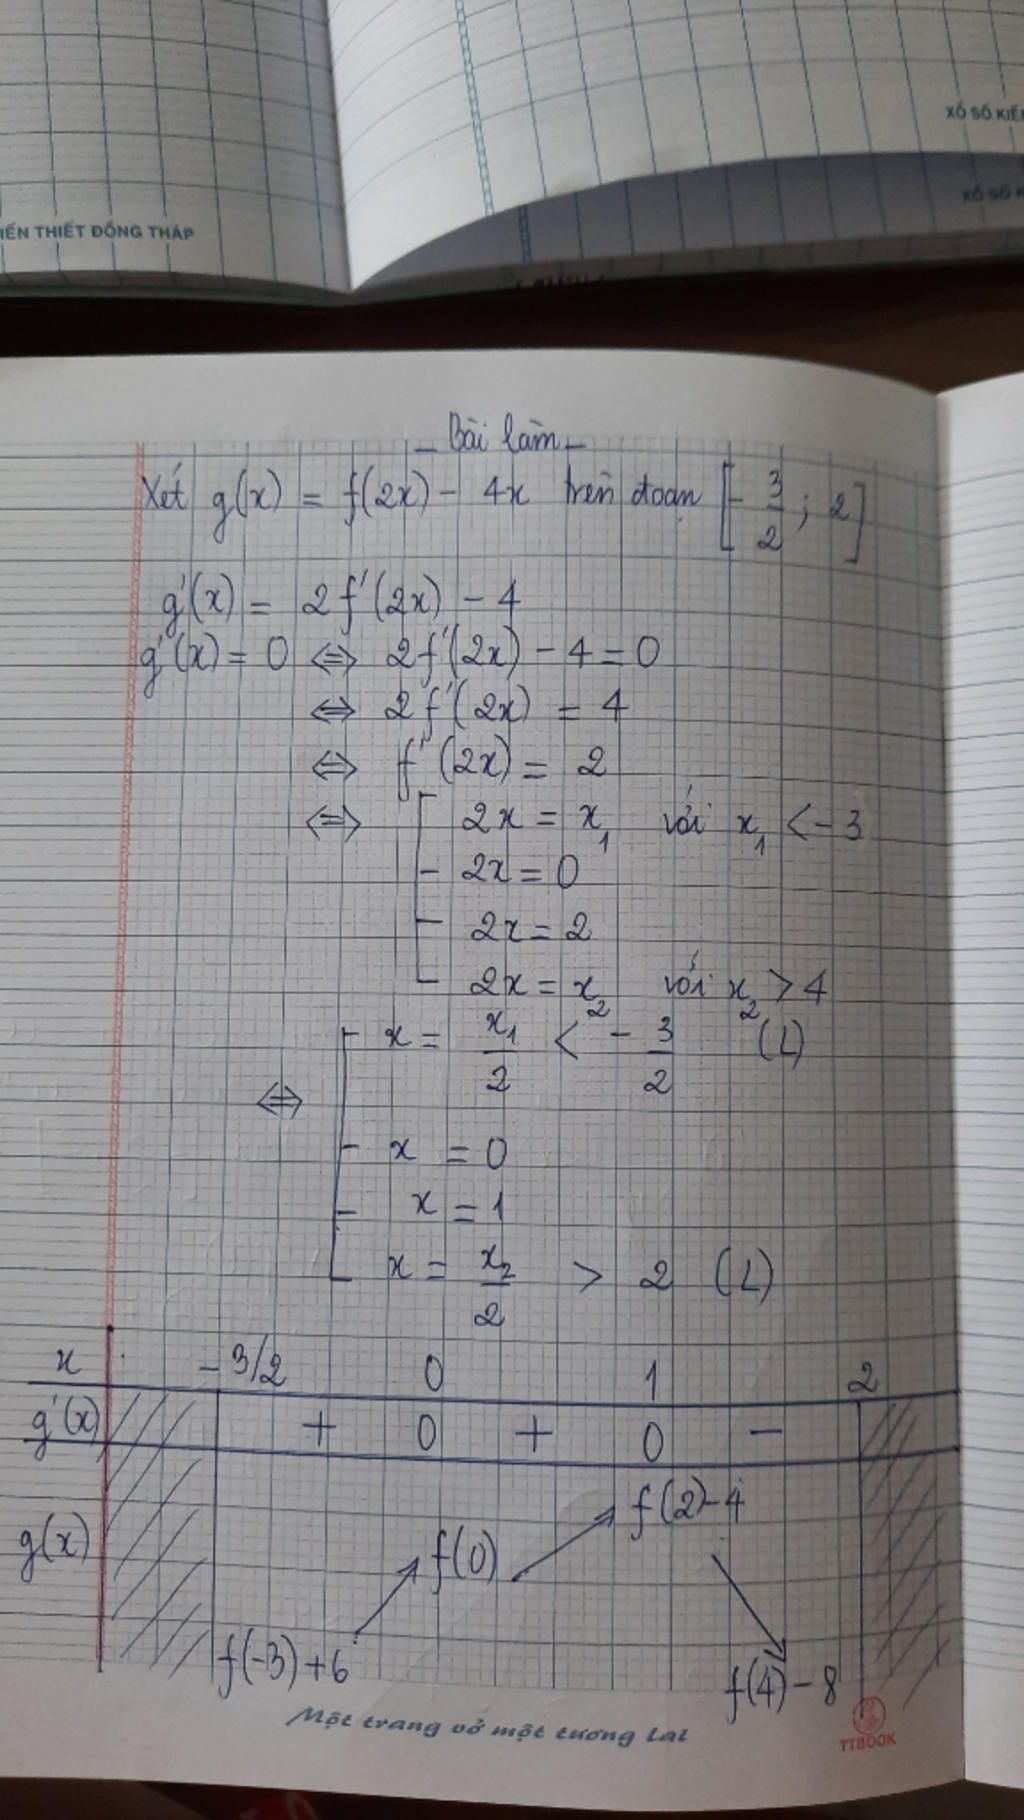 XỔ SỐ KIẾ
XỔ SỐ K
IẾN THIẾT ĐỒNG THÁP
_ Bài làm _
Xét g(x) = f(2x) - 4x trên đoạn [-3/2; 2]
g'(x) = 2f'(2x) - 4
g'(x) = 0 ⇔ 2f'(2x) - 4 = 0
⇔ 2f'(2x) = 4
⇔ f'(2x) = 2
⇔ [ 2x = x₁ với x₁ < -3
2x = 0
2x = 2
2x = x₂ với x₂ > 4
⇔ [ x = x₁/2 < -3/2 (L)
x = 0
x = 1
x = x₂/2 > 2 (L)
x -3/2 0 1 2
g'(x) + 0 + 0 -
f(2)-4
g(x) f(0)
f(-3)+6 f(4)-8
Một trang vở một tương lai
TTBOOK